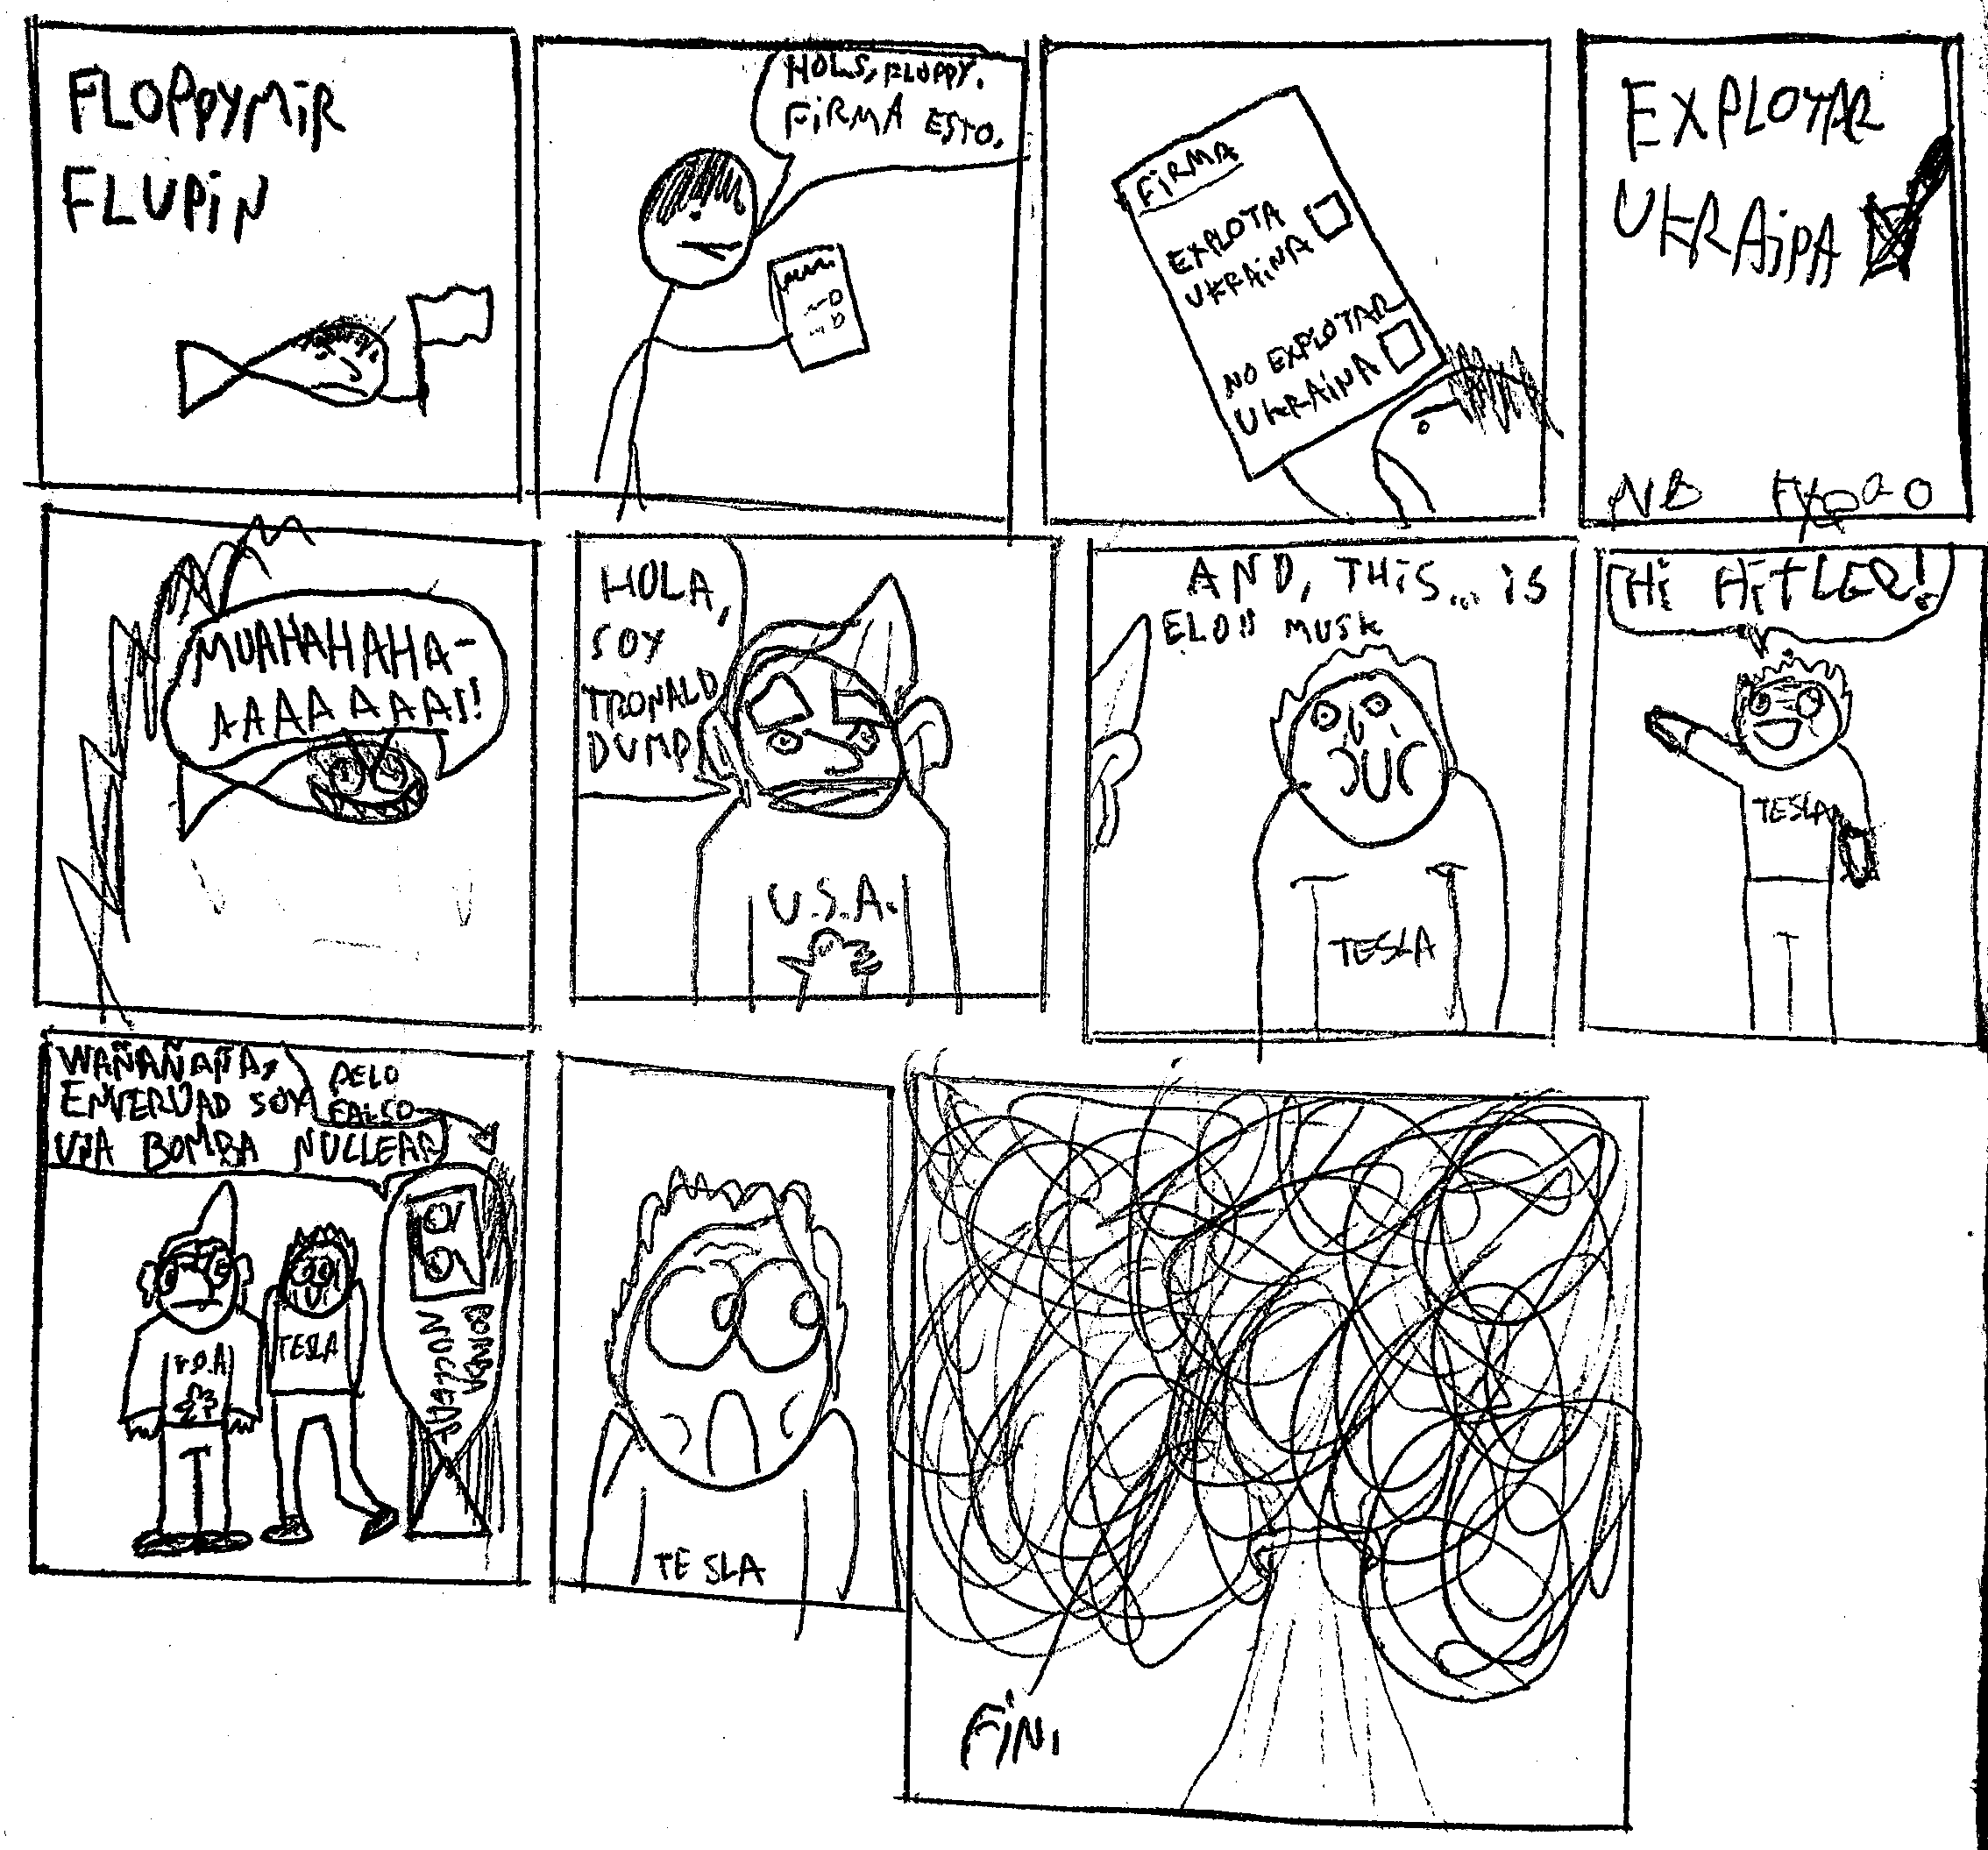 FLOPPYMIR
FLUPIN
HOLS, FLOPPY.
FIRMA ESTO.
FIRMA
EXPLOTA
UKRAINA
NO EXPLOTAR
UKRAINA
EXPLOTAR
UKRAINA
MUAHAHAHA-
AAAAAAAA!!
HOLA,
SOY
TRONALD
DUMP
U.S.A.
AND, THIS... IS
ELON MUSK
TESLA
HI HITLER!
TESLA
WAÑAÑAÑA,
ENVERDAD SOY
UNA BOMBA NUCLEAR
PELO
FALSO
TESLA
BOMBA
NUCLEAR
TESLA
FIN.